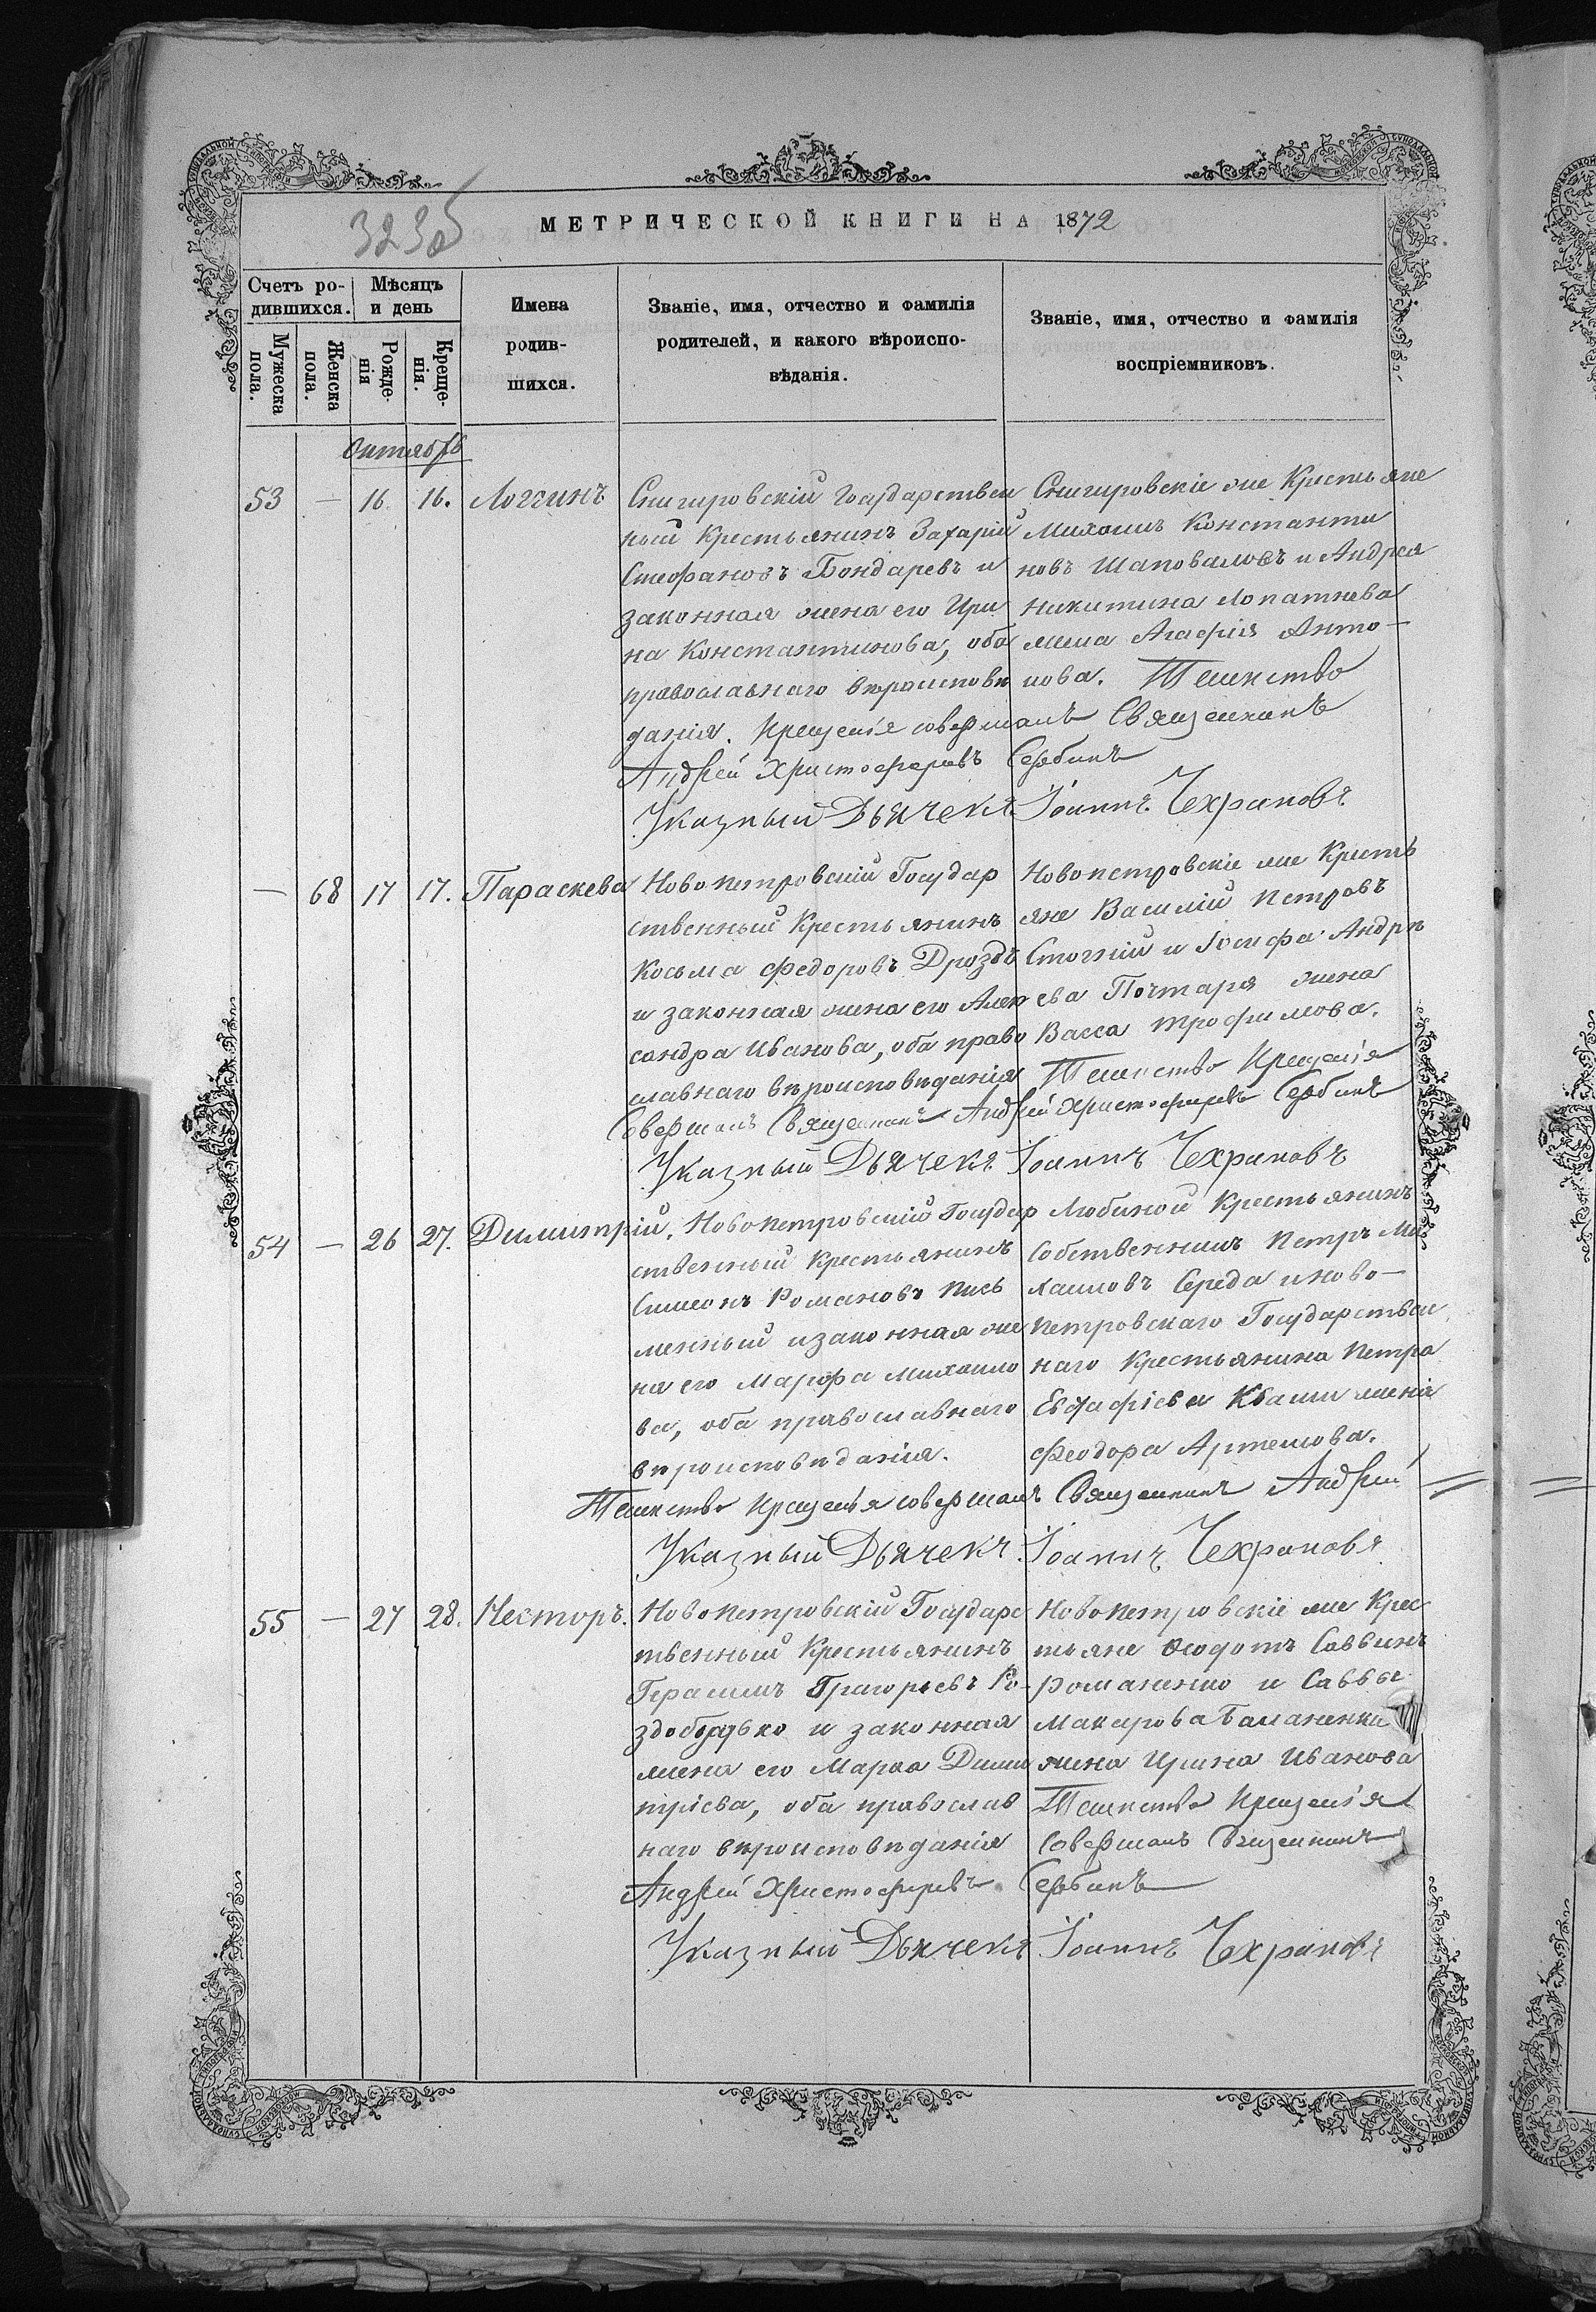 323об
МЕТРИЧЕСКОЙ КНИГИ НА 1872
Счетъ ро-
дившихся.
Мужеска
пола.
Женска
пола.
Мѣсяцъ
и день
Рожде-
нія
Креще-
нія.
Имена
родив-
шихся.
Званіе, имя, отчество и фамилія
родителей, и какого вѣроиспо-
вѣданія.
Званіе, имя, отчество и фамилія
воспріемниковъ.
Октябрь
53 — 16. 16. Логгинъ
Снигировскій Государствен
ный Крестьянинъ Захарій
Стефановъ Бондаревъ и
законная жена его Ири
на Константинова, оба
православнаго вѣроисповѣ
данія.
Снигировскіе же Крестьяне
Михаилъ Константи
новъ Шаповаловъ и Андрея
Никитина Лопатнева
жена Агафія Анто-
нова. Таинство
Крещенія совершалъ Священникъ
Андрей Христофоровъ Сербинъ
Указный Дьячекъ Іоаннъ Чехрановъ
— 68 17 17. Параскева
Новопетровскій Государ
ственный Крестьянинъ
Косьма Федоровъ Дроздъ
и законная жена его Алек
сандра Иванова, оба право
славнаго вѣроисповѣданія
Новопетровскіе же Кресть
яне Василій Петровъ
Стогній и Іосифа Андрѣ
ева Почтаря жена
Васса Трофимова.
Таинство Крещенія
Совершалъ Священникъ Андрей Христофоровъ Сербинъ
Указный Дьячекъ Іоаннъ Чехрановъ
54 — 26 27. Димитрій.
Новопетровскій Государ
ственный Крестьянинъ
Симеонъ Романовъ Пись
менный и законная же
на его Марфа Михаило
ва, оба православнаго
вѣроисповѣданія.
Любиной Крестьянинъ
Собственникъ Петръ Ми
хаиловъ Середа и Ново-
петровскаго Государствен
наго Крестьянина Петра
Евстафіева Кваши жена
Феодора Артемова.
Таинство Крещенія совершалъ Священникъ Андрей
Указный Дьячекъ Іоаннъ Чехрановъ
55 — 27 28. Несторъ.
Новопетровскій Государс
твенный Крестьянинъ
Герасимъ Григорьевъ Ро-
здобудько и законная
жена его Марѳа Дими
тріева, оба православ
наго вѣроисповѣданія
Новопетровскіе же Крес
тьяне Ѳеодотъ Саввинъ
Романенко и Саввы
Макарова
жена Ирина Иванова
Таинство Крещенія
Совершалъ Священникъ
Андрей Христофоровъ Сербинъ
Указный Дьячекъ Іоаннъ Чехрановъ